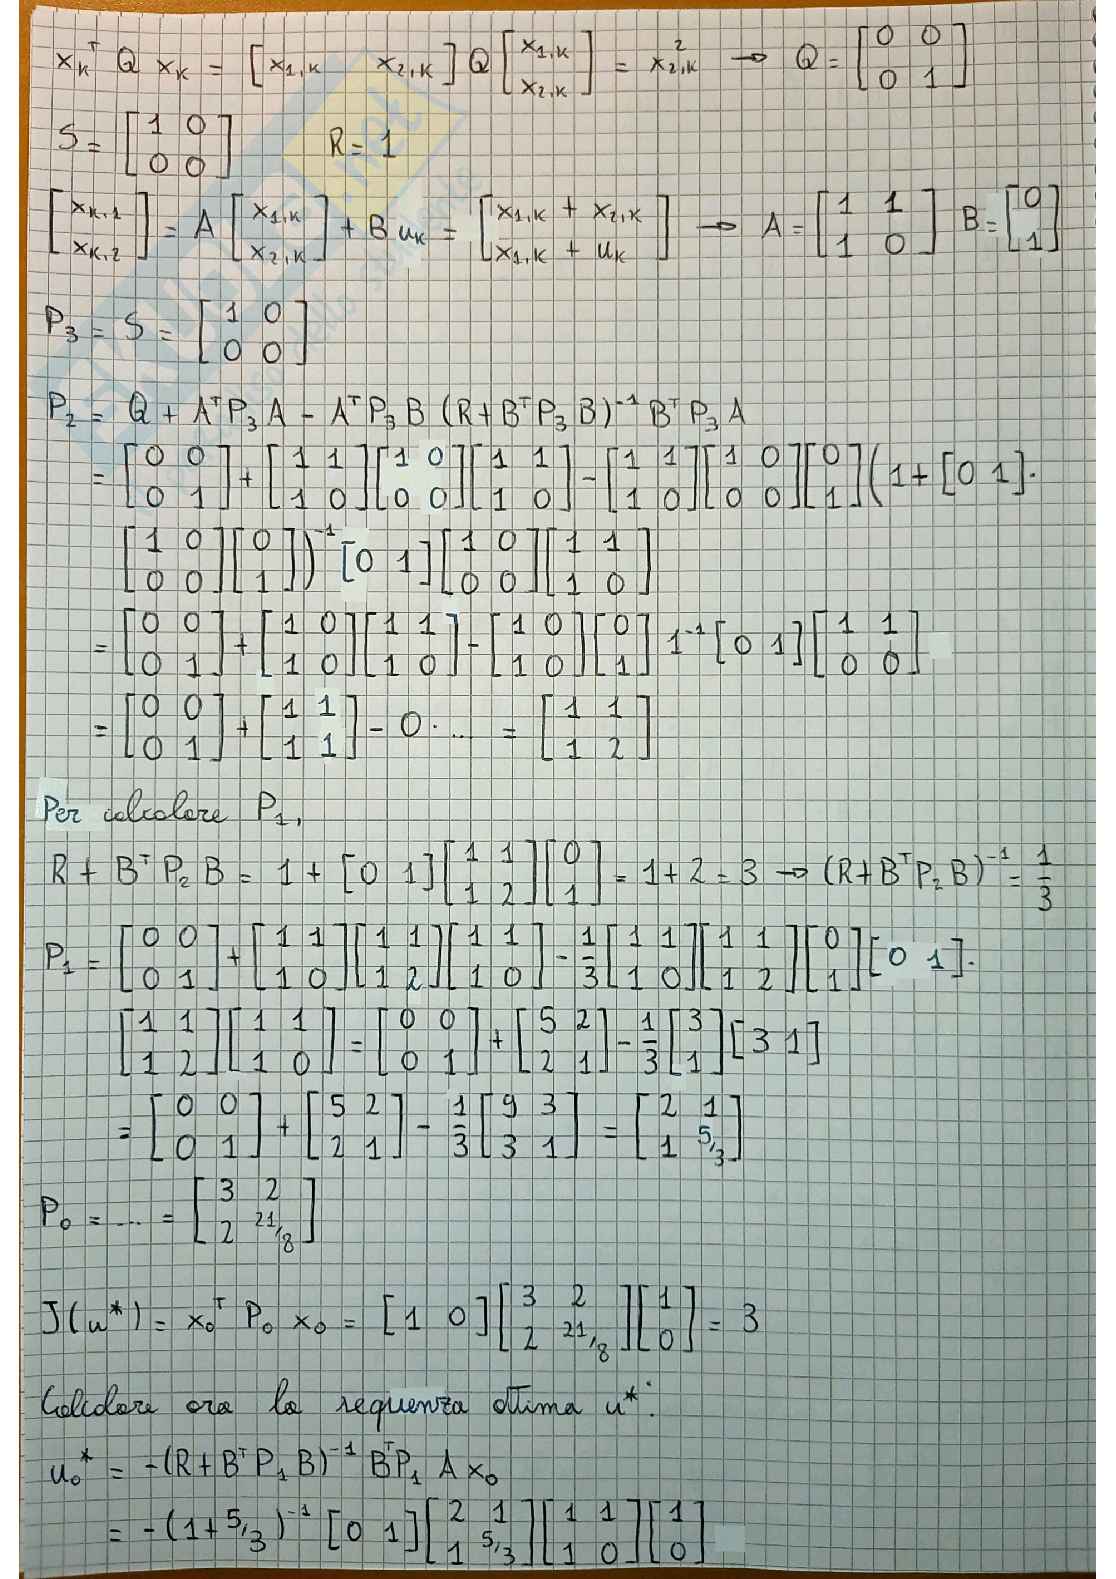 x_k^T Q x_k = [x_{1,k} x_{2,k}] Q [x_{1,k} ; x_{2,k}] = x_{2,k}^2 → Q = [0 0 ; 0 1]
S = [1 0 ; 0 0] R = 1
[x_{k,1} ; x_{k,2}] = A [x_{1,k} ; x_{2,k}] + B u_k = [x_{1,k} + x_{2,k} ; x_{1,k} + u_k] → A = [1 1 ; 1 0] B = [0 ; 1]
P_3 = S = [1 0 ; 0 0]
P_2 = Q + A^T P_3 A - A^T P_3 B (R + B^T P_3 B)^{-1} B^T P_3 A
= [0 0 ; 0 1] + [1 1 ; 1 0] [1 0 ; 0 0] [1 1 ; 1 0] - [1 1 ; 1 0] [1 0 ; 0 0] [0 ; 1] (1 + [0 1] ·
[1 0 ; 0 0] [0 ; 1])^{-1} [0 1] [1 0 ; 0 0] [1 1 ; 1 0]
= [0 0 ; 0 1] + [1 0 ; 1 0] [1 1 ; 1 0] - [1 0 ; 1 0] [0 ; 1] 1^{-1} [0 1] [1 1 ; 0 0]
= [0 0 ; 0 1] + [1 1 ; 1 1] - 0 · ... = [1 1 ; 1 2]
Per calcolare P_1,
R + B^T P_2 B = 1 + [0 1] [1 1 ; 1 2] [0 ; 1] = 1 + 2 = 3 → (R + B^T P_2 B)^{-1} = 1/3
P_1 = [0 0 ; 0 1] + [1 1 ; 1 0] [1 1 ; 1 2] [1 1 ; 1 0] - 1/3 [1 1 ; 1 0] [1 1 ; 1 2] [0 ; 1] [0 1] ·
[1 1 ; 1 2] [1 1 ; 1 0] = [0 0 ; 0 1] + [5 2 ; 2 1] - 1/3 [3 ; 1] [3 1]
= [0 0 ; 0 1] + [5 2 ; 2 1] - 1/3 [9 3 ; 3 1] = [2 1 ; 1 5/3]
P_0 = ... = [3 2 ; 2 21/8]
J(u*) = x_0^T P_0 x_0 = [1 0] [3 2 ; 2 21/8] [1 ; 0] = 3
Calcolare ora la sequenza ottima u*:
u_0* = -(R + B^T P_1 B)^{-1} B^T P_1 A x_0
= -(1 + 5/3)^{-1} [0 1] [2 1 ; 1 5/3] [1 1 ; 1 0] [1 ; 0]